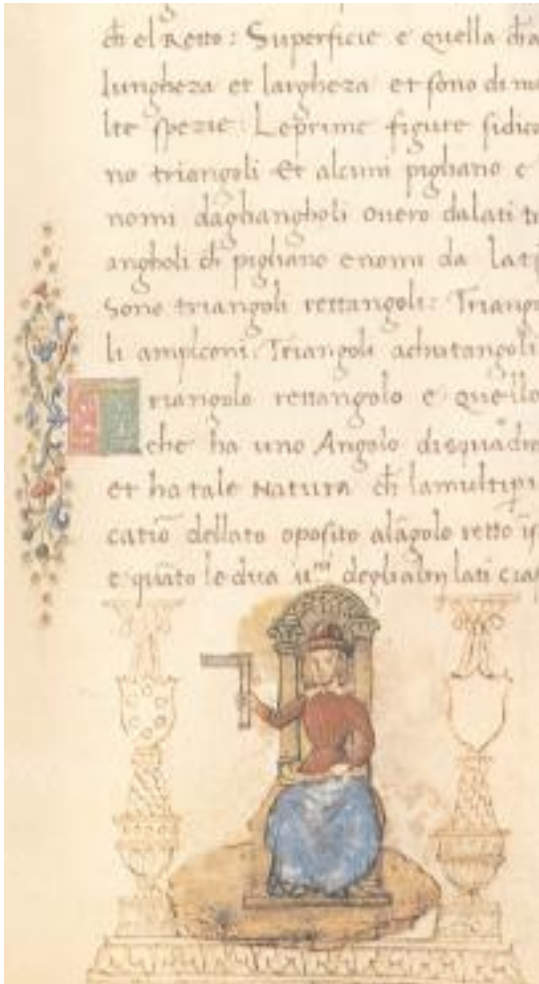 ch el Retto: Superficie e quella cha
lungheza et largheza et sono di mo
lte spezie: Leprime figure sidico
no triangoli Et alcuni pighano e
nomi daghangholi overo dalati tr
angholi ch pighano enomi da lati
Sono triangoli rettangoli: Triango
li ampiconi. Triangoli achutangoli
Triangolo rettangolo e quello
che ha uno Angolo disquadro
et ha tale NATURA ch lamultipri
catiō dellato oposito alāgolo retto
e quāto le dua deglialtri lati